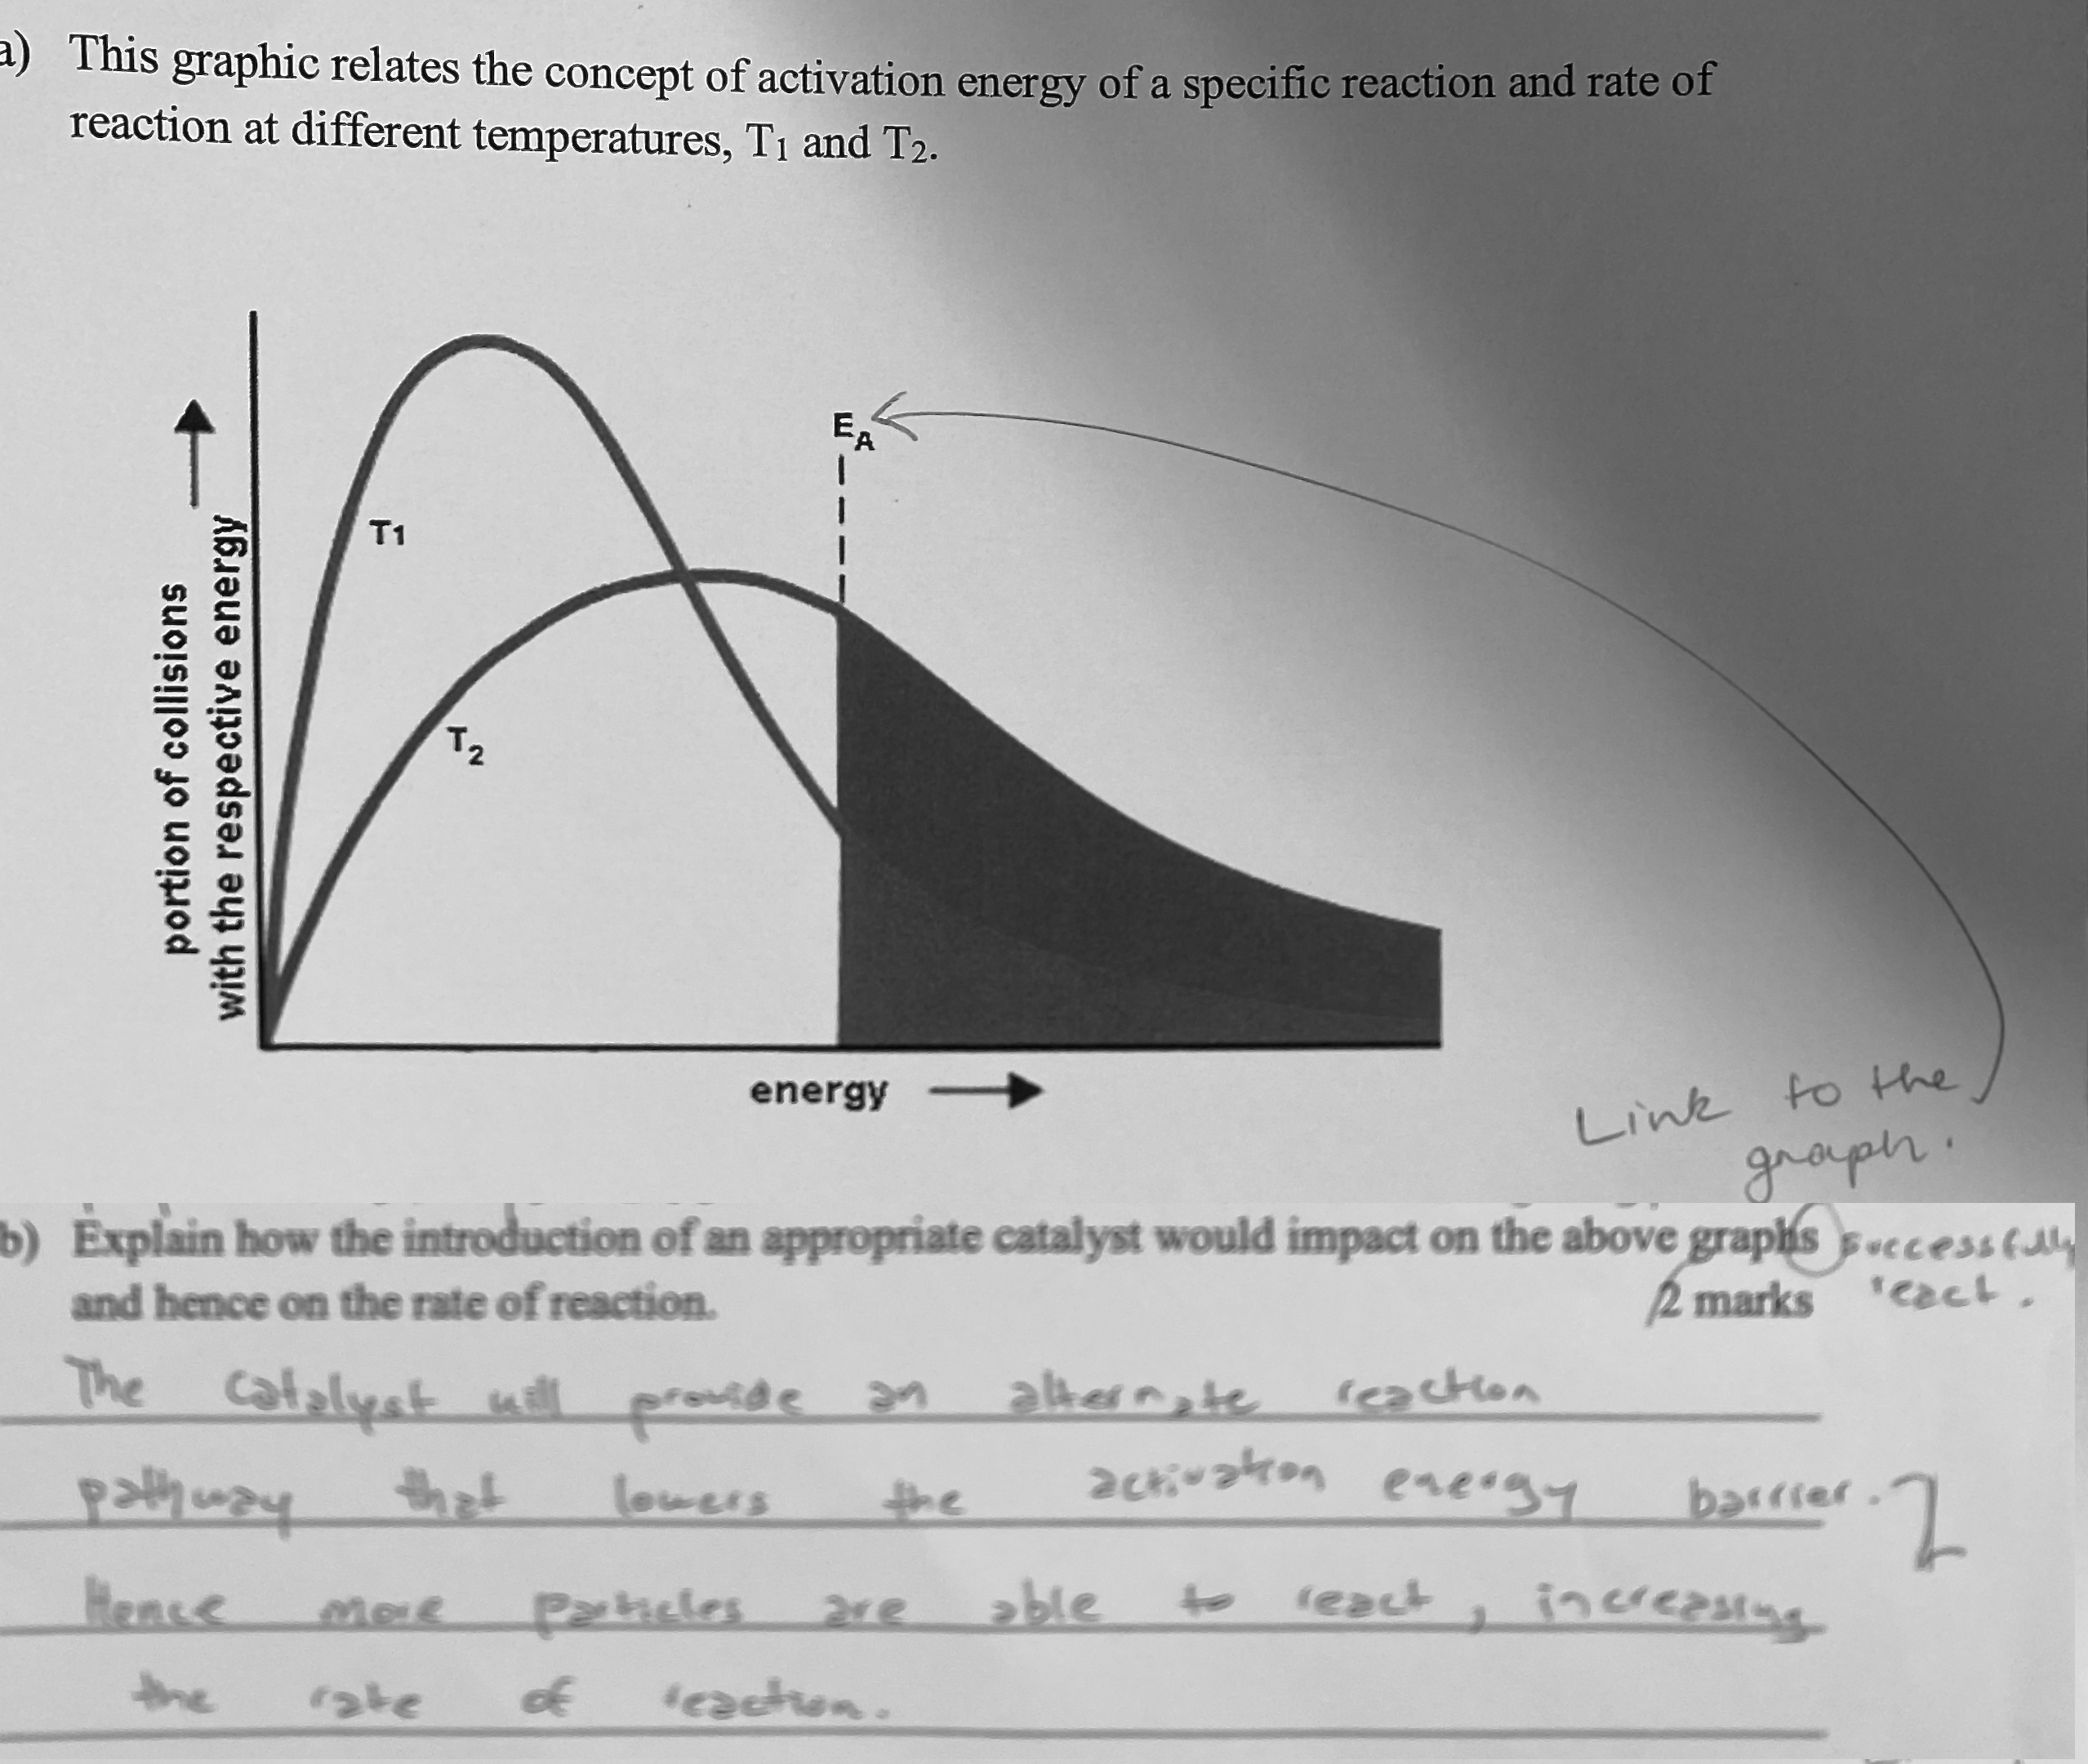 a) This graphic relates the concept of activation energy of a specific reaction and rate of
reaction at different temperatures, T1 and T2.
EA
T1
T2
portion of collisions
with the respective energy
energy
Link to the
graph.
b) Explain how the introduction of an appropriate catalyst would impact on the above graphs
and hence on the rate of reaction.
2 marks
successfully
react.
The catalyst will provide an alternate reaction
pathway that lowers the activation energy barrier.
2
Hence more particles are able to react, increasing
the rate of reaction.